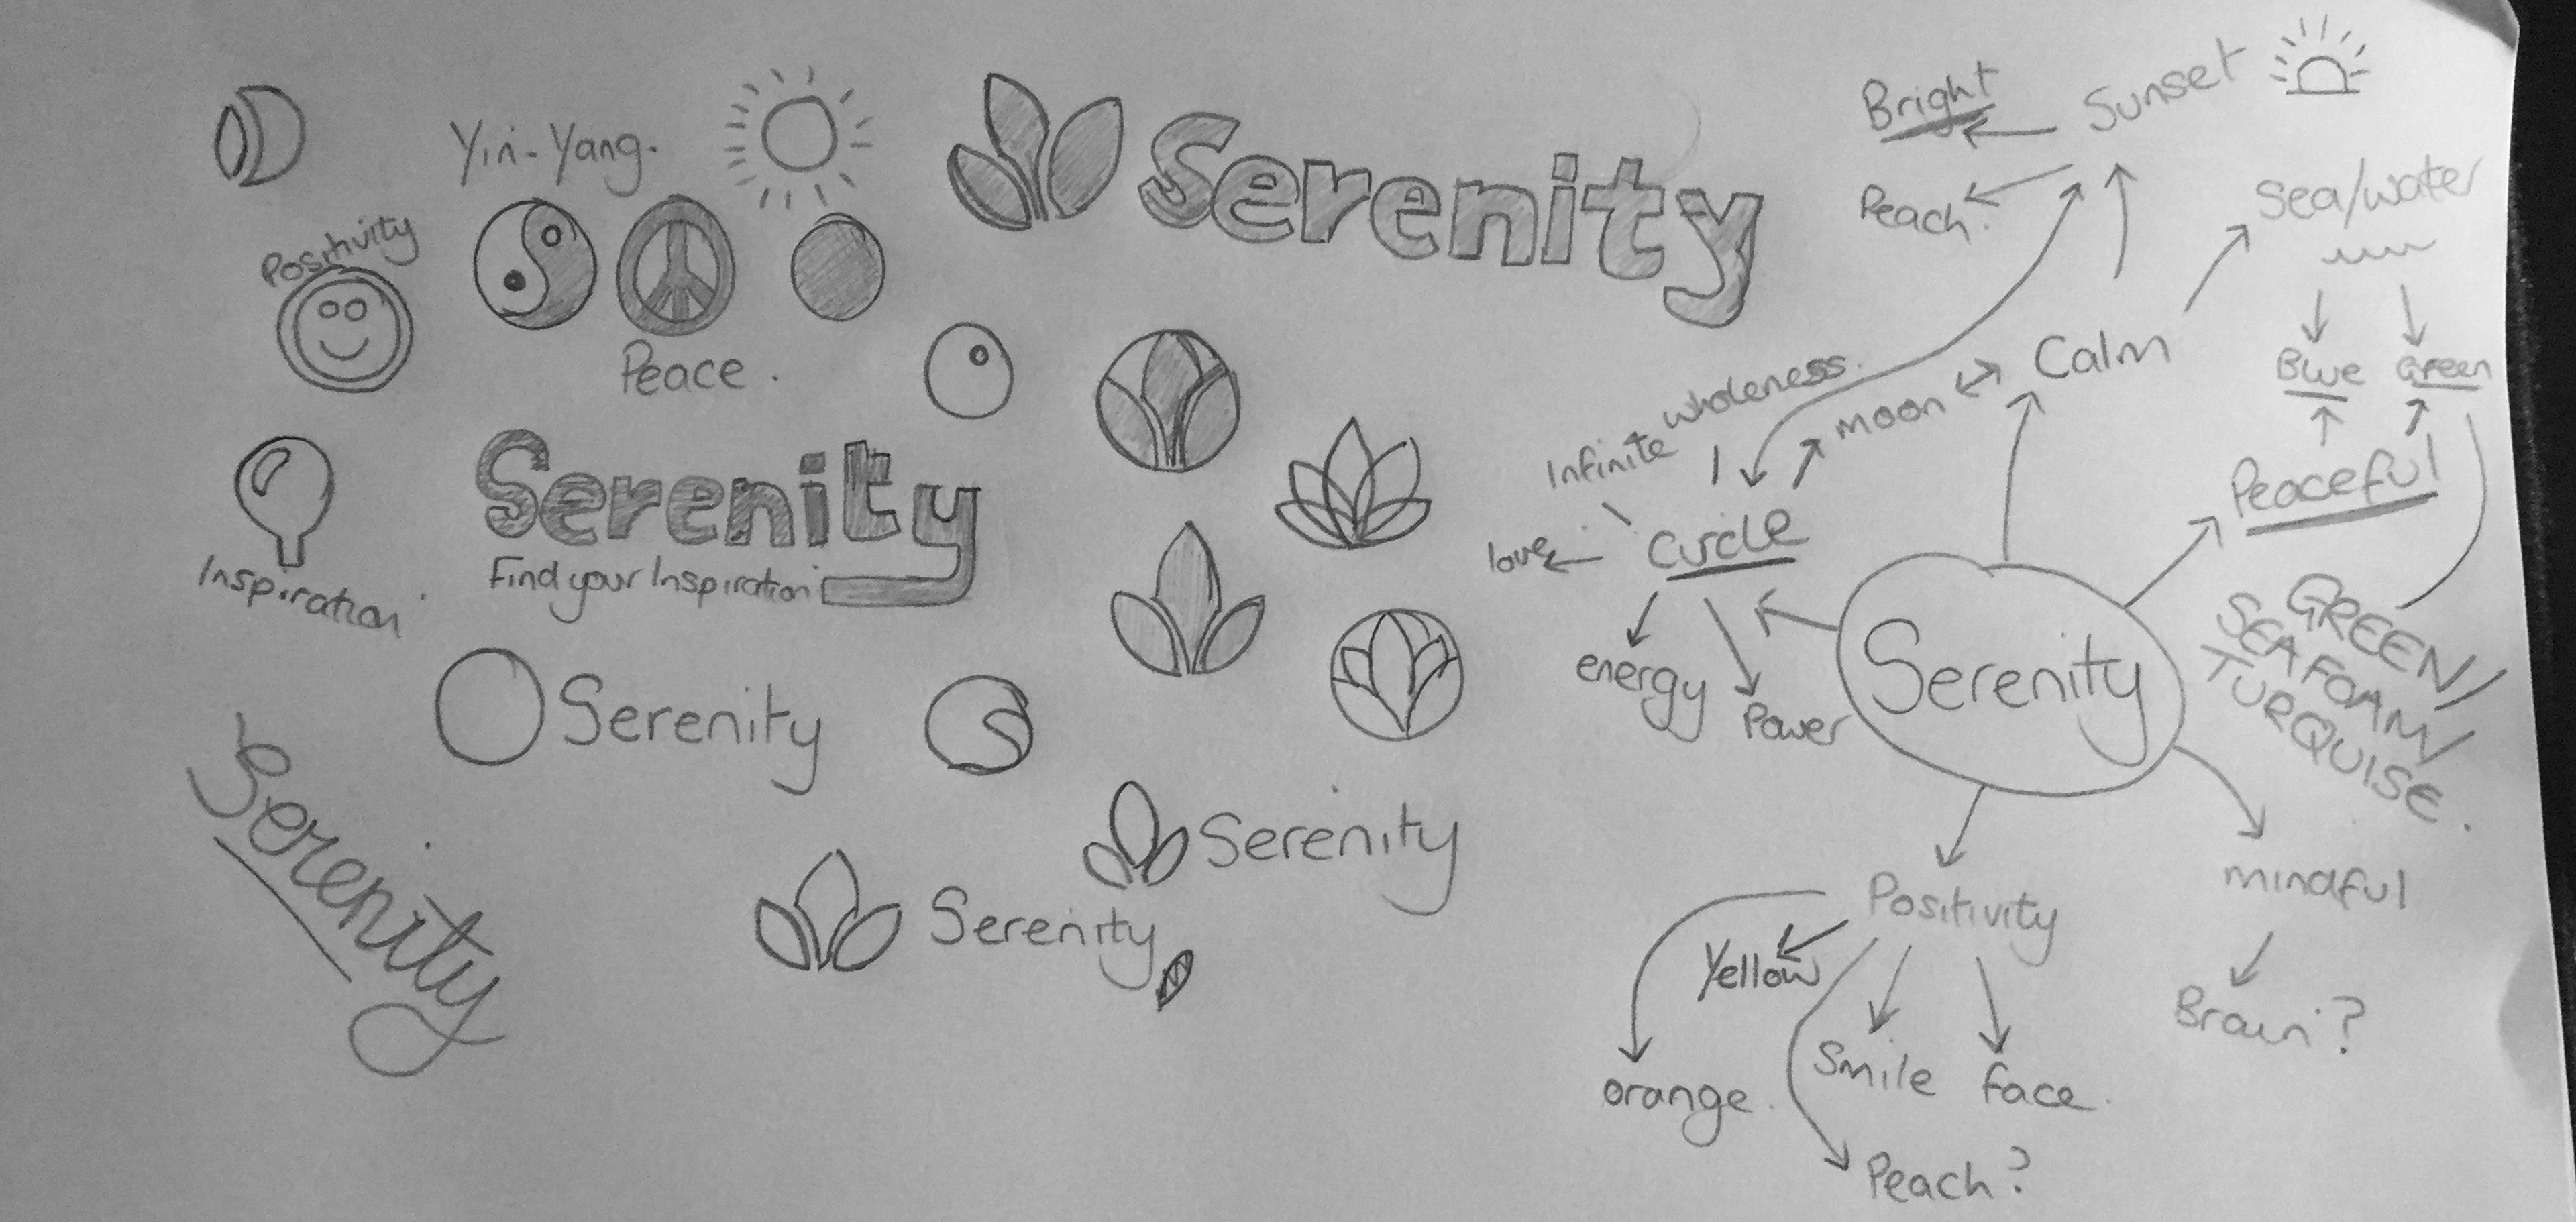 Yin-Yang.
Positivity
Peace.
Serenity
Serenity
Find your Inspiration
Inspiration
Serenity
Serenity
Serenity
Serenity
Sunset
Bright
Peach.
Sea/water
Calm
Blue
Green
Moon
wholeness.
Infinite
love
Circle
energy
Power
Peaceful
GREEN/
SEAFOAM/
TURQUISE.
Serenity
mindful
Brain?
Positivity
Yellow
orange.
Smile
face.
Peach?